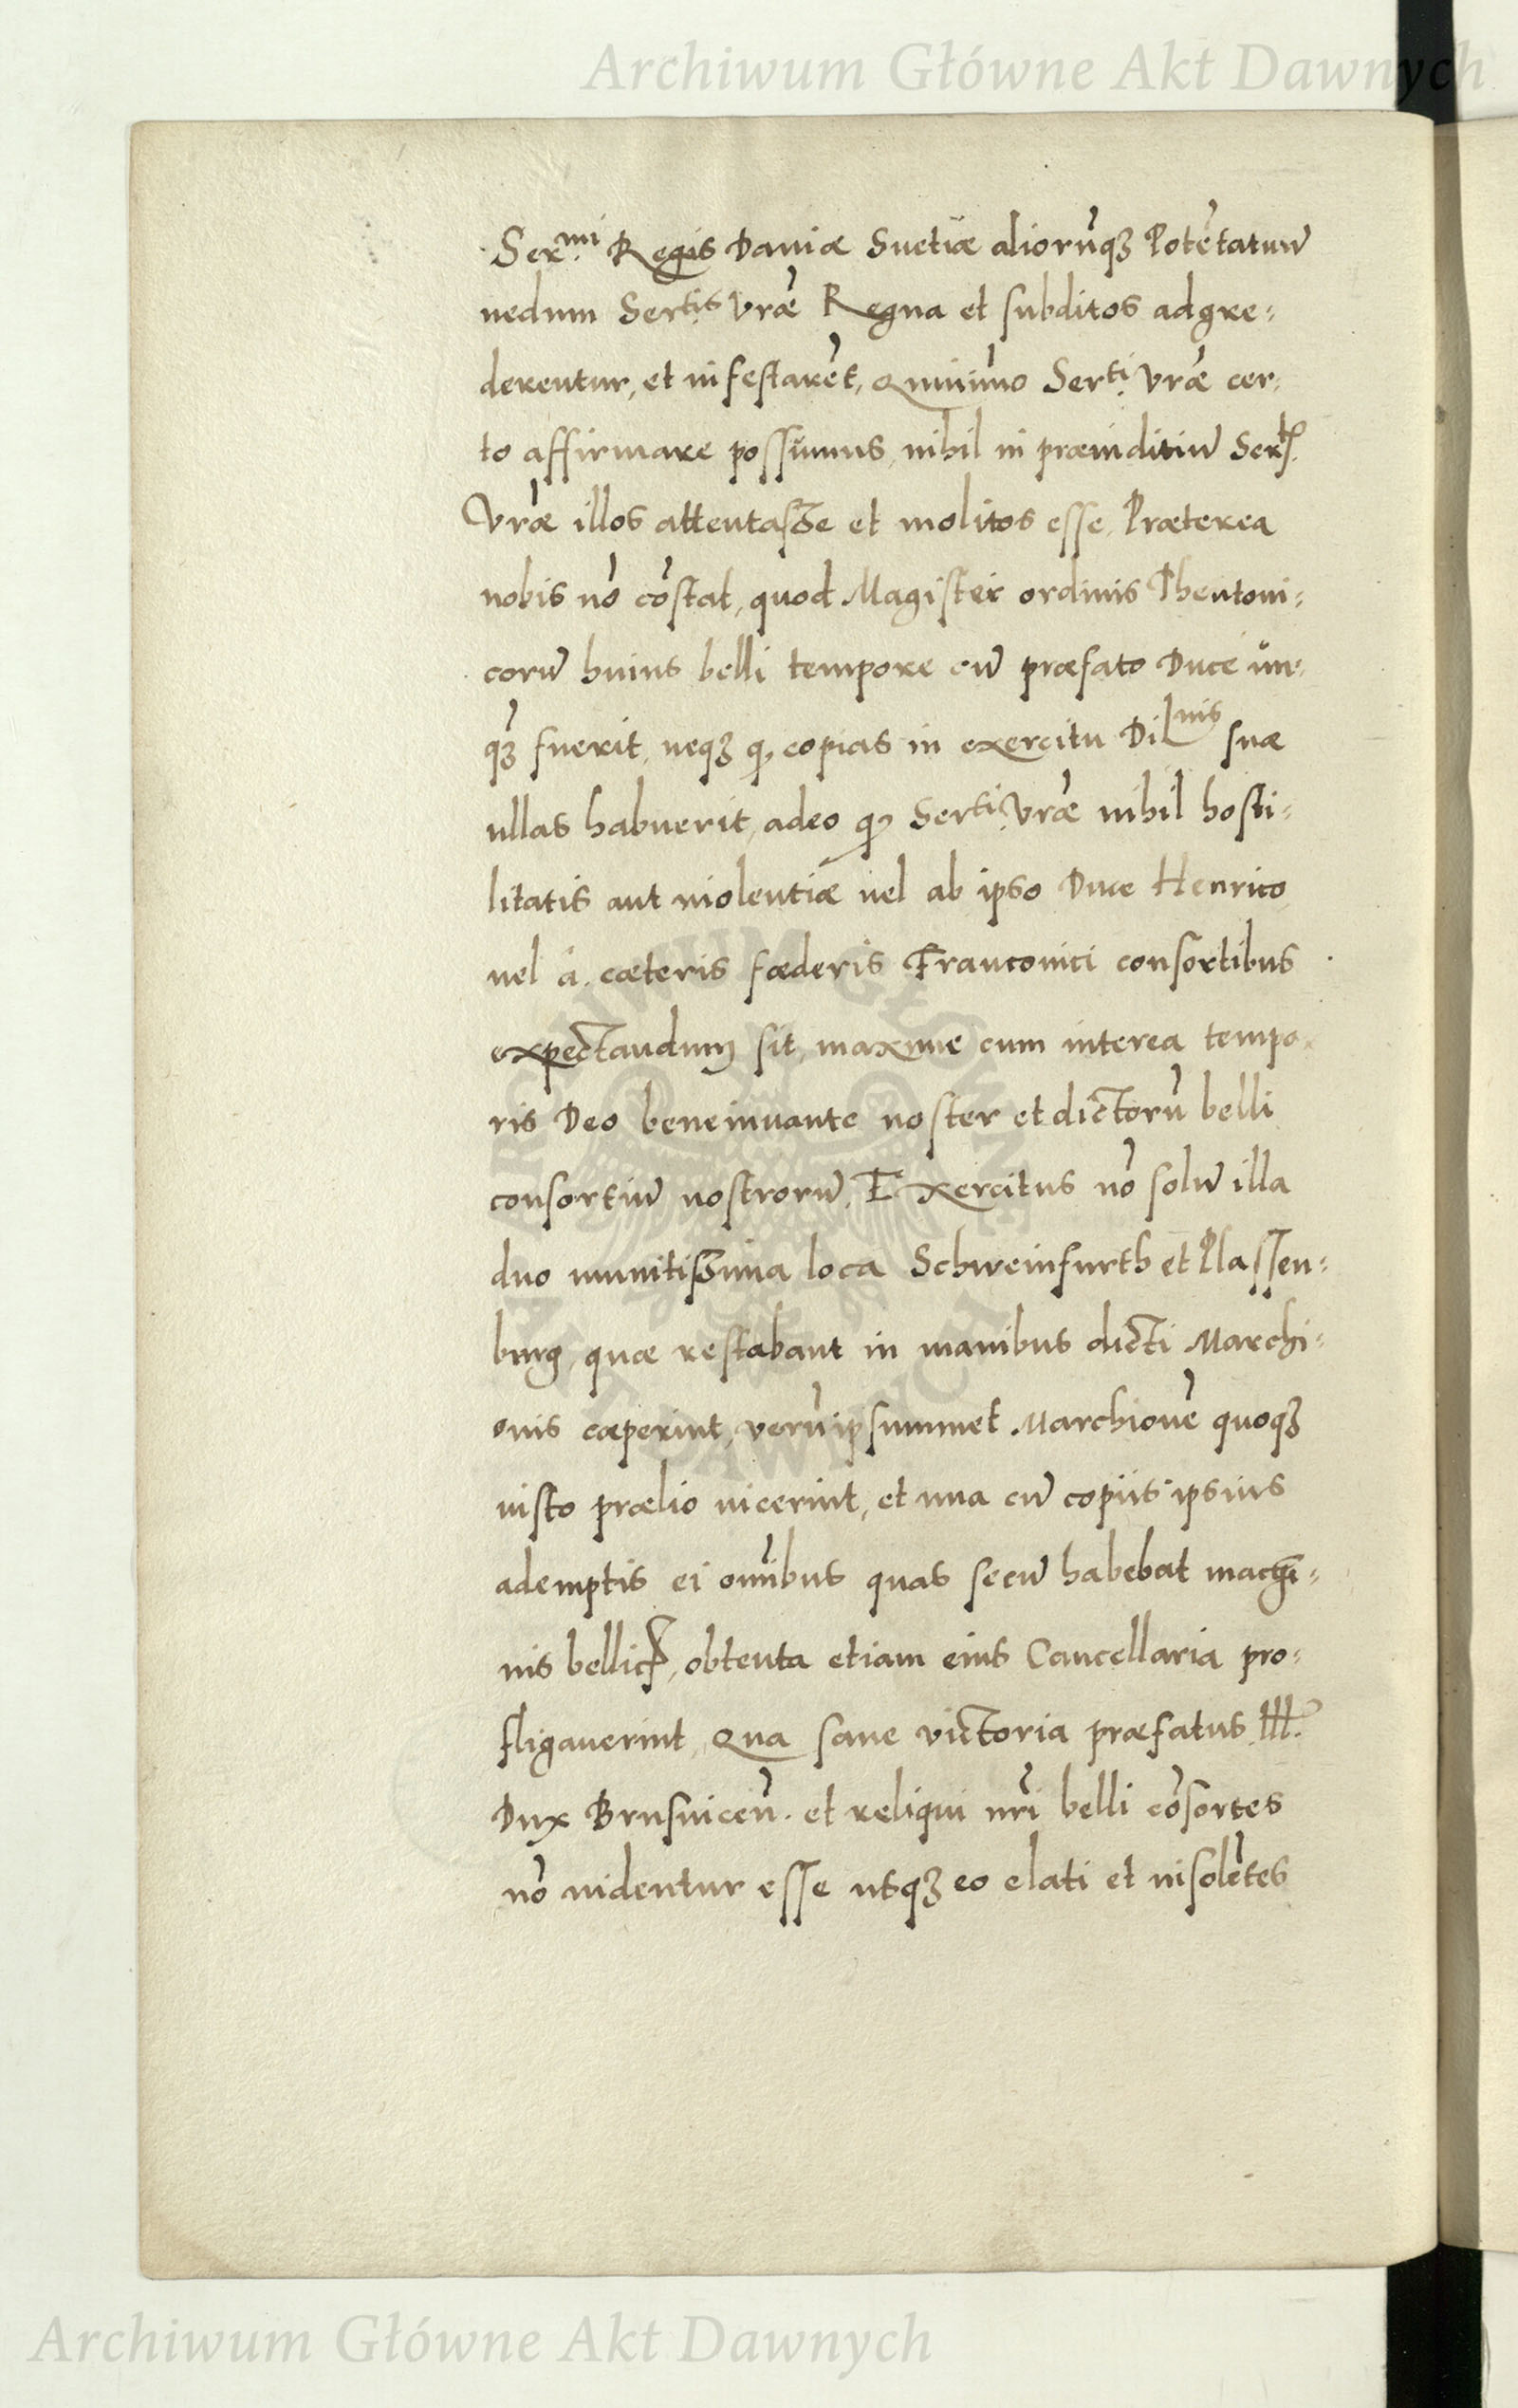 Archiwum Główne Akt Dawnych
Ser.mi Regis Daniæ Suetiæ aliorũqꝫ Potẽtatuũ
nedum Ser.tis Vræ̃ Regna et subditos adgre=
derentur, et infestarẽt, Quinimò Ser.ti Vræ̃ cer=
to affirmare possumus, nihil in præiuditiũ Ser.tis
Vræ̃ illos attentasse et molitos esse, Præterea
nobis nõ cõstat, quod Magister ordinis Theutoni=
corũ huius belli tempore cũ præfato Duce un=
qꝫ̃ fuerit, neqꝫ ꝙ copias in exercitu Dil.nis suæ
ullas habuerit, adeo ꝙ Ser.ti Vræ̃ nihil hosti=
litatis aut uiolentiæ uel ab ipso Duce Henrico
uel à cæteris fœderis Franconici consortibus
expectandum sit, maxime cum interea tempo=
ris Deo beneiuuante noster et dictorũ belli
consortiũ nostrorũ Exercitus nõ solũ illa
duo munitissima loca Schweinfurth et Plassen=
burg, quæ restabant in manibus dicti Marchi=
onis cæperint, verũ ipsummet Marchionẽ quoqꝫ
iusto prælio uicerint, et una cũ copiis ipsius
ademptis ei omĩbus quas secũ habebat machi=
nis bellicꝭ, obtenta etiam eius Cancellaria pro=
fligauerint, Qua sane victoria præfatus Ill.
Dux Brusuiceñ. et reliqui nr̃i belli cõsortes
nõ uidentur esse usqꝫ eo elati et insolẽtes
ARCHIWUM GŁÓWNE
AKT DAWNYCH
Archiwum Główne Akt Dawnych